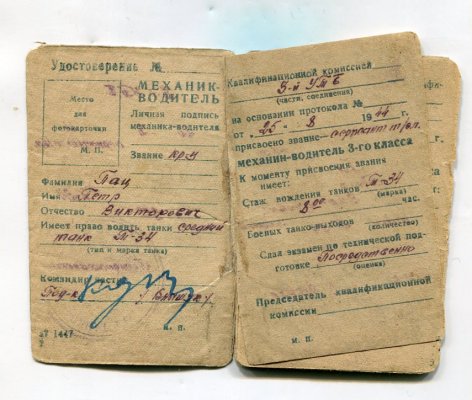 Удостоверение №
МЕХАНИК-
ВОДИТЕЛЬ
Место
для
фотокарточки
М. П.
Личная подпись
механика-водителя
Звание кр-ц
Фамилия Пац
Имя Петр
Отчество Викторович
Имеет право водить танки средний
танк Т-34
(тип и марка танка)
Командир части
Под-к
зт 1447
м. п.
Квалификационной комиссией
5-й УТБ
(части, соединения)
на основании протокола №
от „25“ 8 1944 г.
присвоено звание сержант
механик-водитель 3-го класса
К моменту присвоения звания
имеет:
Стаж вождения танков Т-34
(марка)
8 00 час.
Боевых танко-выходов
(количество)
Сдал экзамен по технической под-
готовке Посредственно
(оценка)
Председатель квалификационной
комиссии
м. п.